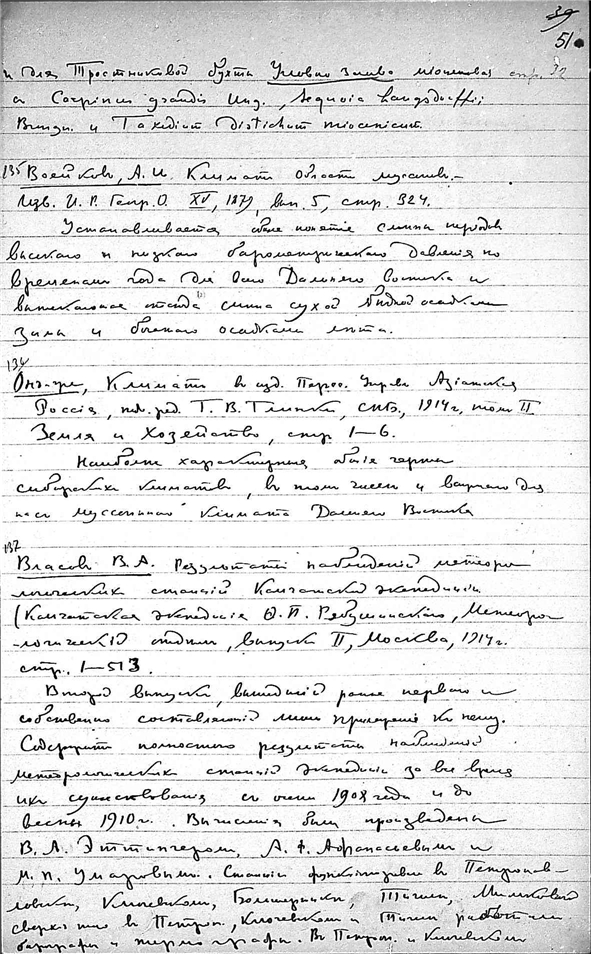 39
51.
и для Тростниковой бухты Угловаго залива миоценовая стр. 32
а Carpinus grandis Ung., Sequoia Langsdorffii
Brongn. и Taxodium distichum miocenicum.
135 Воейков, А. И. Климат области муссонов.–
Изв. И. Р. Геогр. О. XV, 1879, вып. 5, стр. 324.
Устанавливается общее понятие смены периодов
высокаго и низкаго барометрическаго давления по
временам года для всего Дальняго востока и
вытекающая отсюда смена сухой бедной осадками
зимы и богатаго осадками лета.
136
Он-же, Климат в изд. Перес. Управ. Азіатская
Россія, под ред. Г. В. Глинки, СПБ., 1914 г., том II
Земля и Хозяйство, стр 1–6.
Наиболее характерныя общія черты
сибирских климатов, в том числе и важнаго для
нас муссоннаго климата Дальняго Востока
137
Власов В. А. Результаты наблюденій метеоро-
логических станцій Камчатской экспедиціи
(Камчатская экспедиція Ѳ. П. Рябушинскаго, Метеоро-
-логическій отдел, выпуск II, Москва, 1914 г.
стр. 1–513.
Второй выпуск, вышедшій ранее перваго и
собственно составляющій лишь приложеніе к нему.
Содержит полностью результаты наблюденій
метеорологических станцій экспедиціи за все время
их существованія с осени 1908 года и до
весны 1910 г. Вычисленія были произведены
В. А. Эттингером, А. Ф. Афанасьевым и
М. П. Умаровым. Станціи функціонировали в Петропав-
ловске, Ключевском, Большерецке, Тигиле, Мильковой
сверх того в Петроп., Ключевском и Тигиле работали
барографы и термографы. В Петроп. и Ключевском